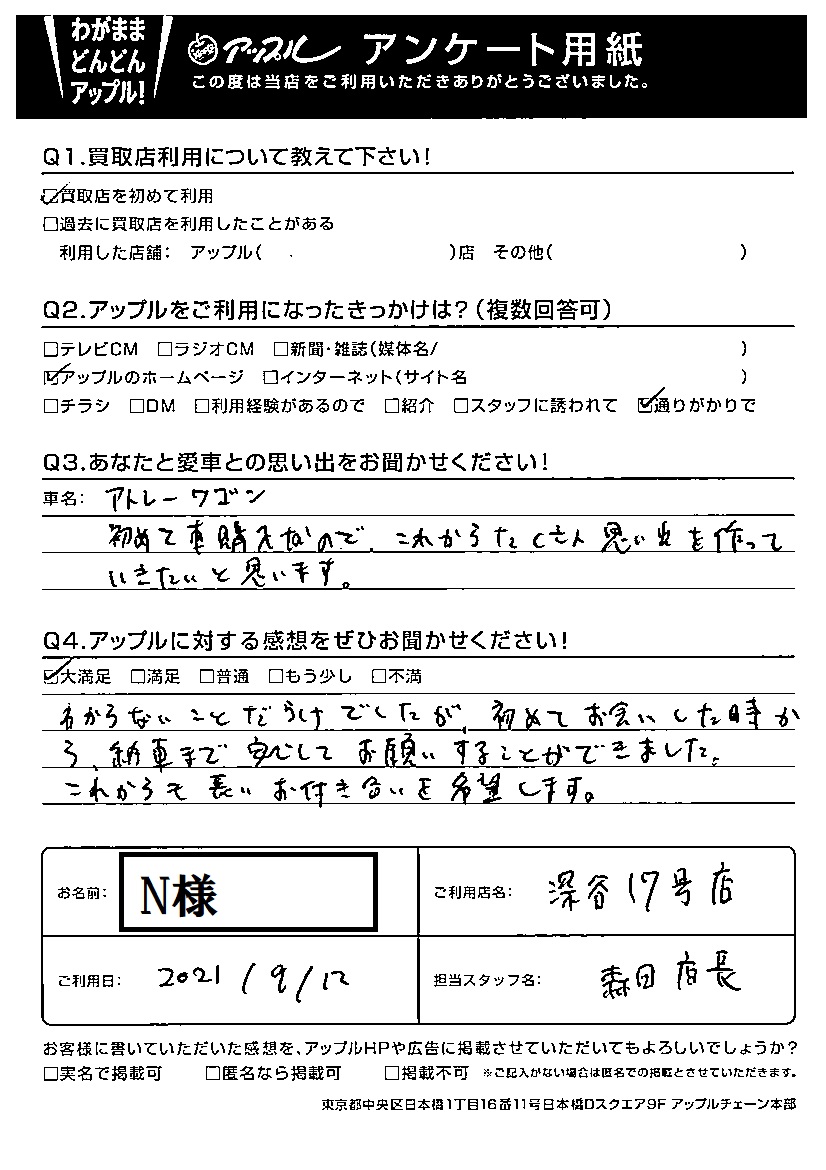 わがまま
どんどん
アップル!
アップル アンケート用紙
この度は当店をご利用いただきありがとうございました。
Q1.買取店利用について教えて下さい!
☑買取店を初めて利用
□過去に買取店を利用したことがある
利用した店舗: アップル( )店 その他( )
Q2.アップルをご利用になったきっかけは?(複数回答可)
□テレビCM □ラジオCM □新聞・雑誌(媒体名/ )
☑アップルのホームページ □インターネット(サイト名 )
□チラシ □DM □利用経験があるので □紹介 □スタッフに誘われて ☑通りがかりで
Q3.あなたと愛車との思い出をお聞かせください!
車名: アトレーワゴン
初めて車購入なので、これからたくさん思い出を作って
いきたいと思います。
Q4.アップルに対する感想をぜひお聞かせください!
☑大満足 □満足 □普通 □もう少し □不満
分からないことだらけでしたが、初めてお会いした時か
ら、納車まで安心してお願いすることができました。
これからも長いお付き合いを希望します。
お名前: N様
ご利用店名: 深谷17号店
ご利用日: 2021/9/12
担当スタッフ名: 森田店長
お客様に書いていただいた感想を、アップルHPや広告に掲載させていただいてもよろしいでしょうか?
□実名で掲載可 □匿名なら掲載可 □掲載不可 ※ご記入がない場合は匿名での掲載とさせていただきます。
東京都中央区日本橋1丁目16番11号日本橋Dスクエア9F アップルチェーン本部